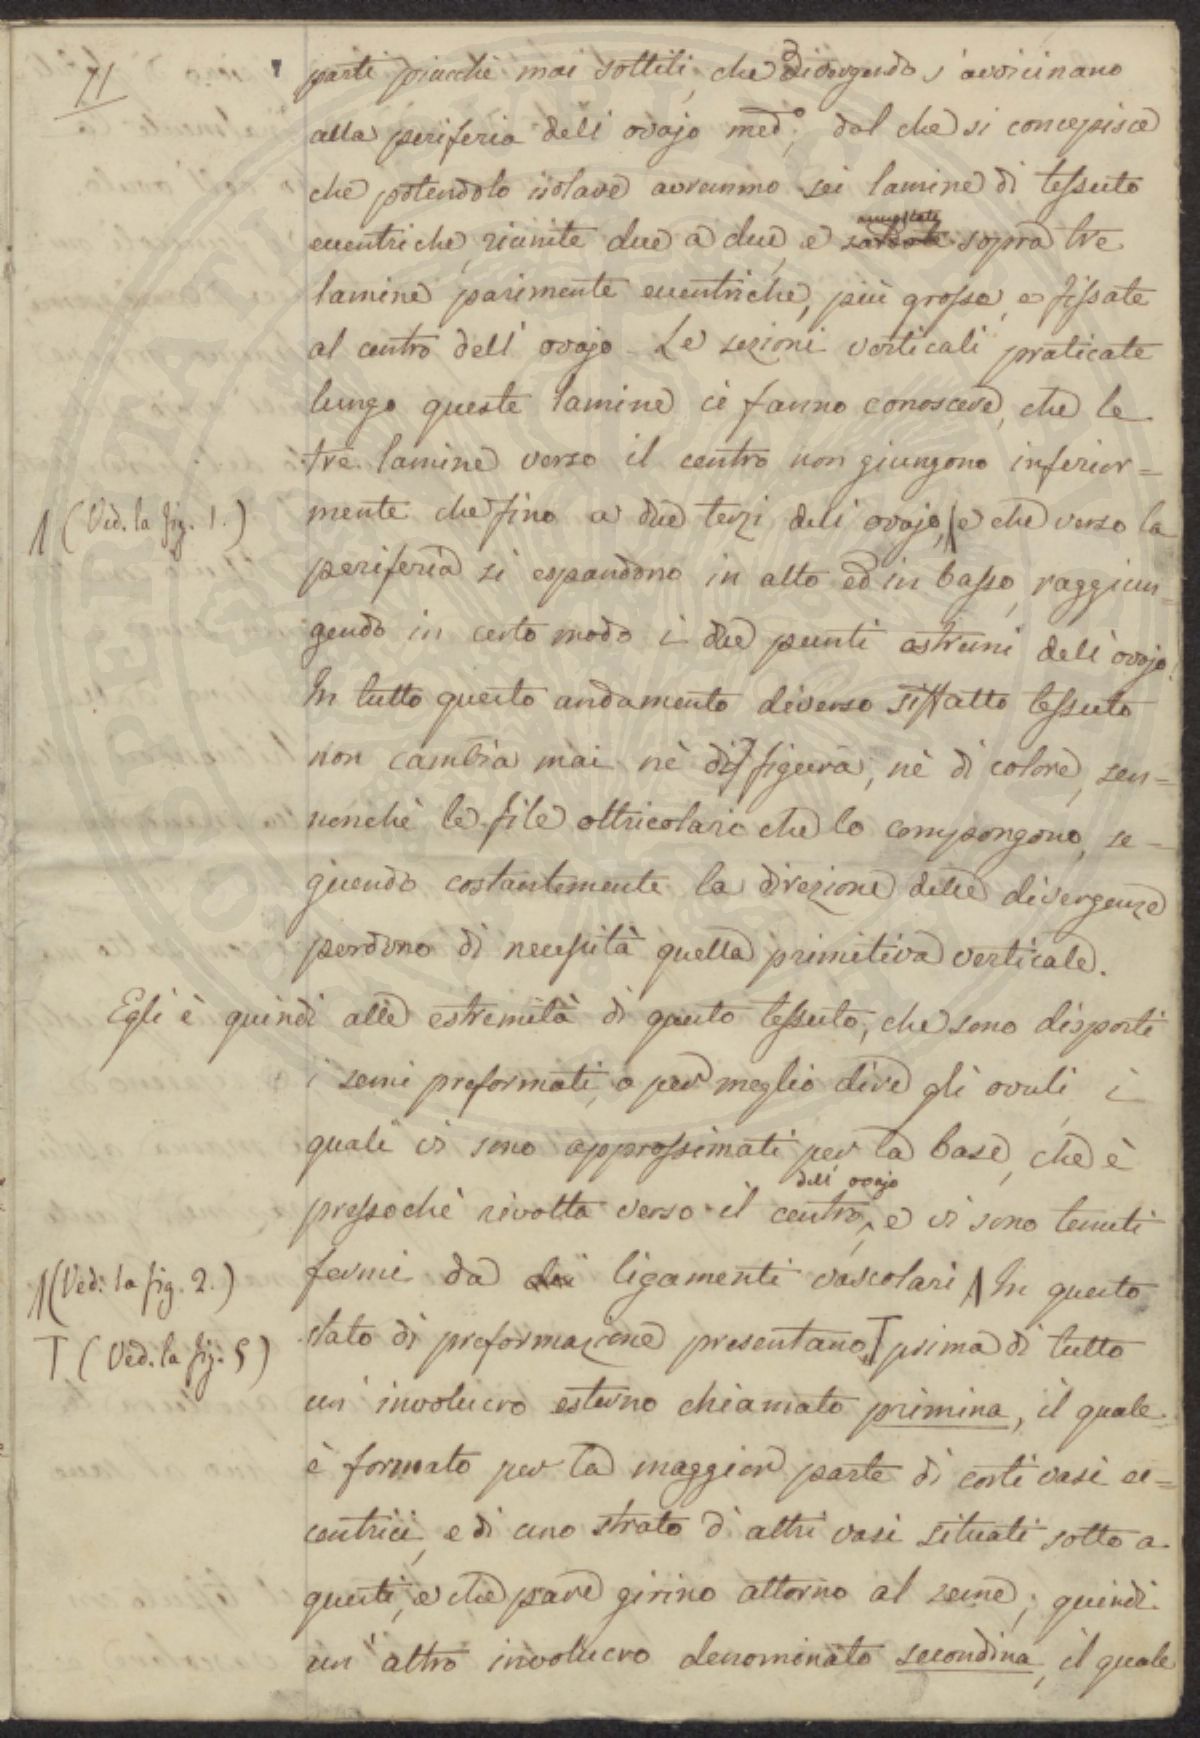 71
parti piucchè mai sottili, che divergendo s'avvicinano
alla periferia dell'ovajo med.º; dal che si concepisce
che potendolo isolare avremmo sei lamine di tessuto
eccentriche, riunite due a due, e
sopra tre
lamine parimente eccentriche, più grosse, e fissate
al centro dell'ovajo. Le sezioni verticali praticate
lungo queste lamine ci fanno conoscere, che le
tre lamine verso il centro non giungono inferior=
(Ved. la fig. 1.)
mente che fino a due terzi dell'ovajo, e che verso la
periferia si espandono in alto ed in basso, raggiun=
gendo in certo modo i due punti estremi dell'ovajo.
In tutto questo andamento diverso siffatto tessuto
non cambia mai nè di figura, nè di colore, sen=
nonchè le file otricolari che lo compongono, se=
guendo costantemente la direzione delle divergenze
perdono di necessità quella primitiva verticale.
Egli è quindi alle estremità di questo tessuto, che sono disposti
i semi preformati, o per meglio dire gli ovuli, i
quali vi sono approssimati per la base, che è
dell'ovajo
pressochè rivolta verso il centro, e vi sono tenuti
(Ved: la fig. 2.)
fermi da dei ligamenti vascolari. In questo
T (Ved. la fig. 5)
stato di preformazione presentano T prima di tutto
un'involucro esterno chiamato primina, il quale
è formato per la maggior parte di corti vasi ec=
centrici, e di uno strato d'altri vasi situati sotto a
questi, e che pare girino attorno al seme; quindi
un'altro involucro denominato secondina, il quale